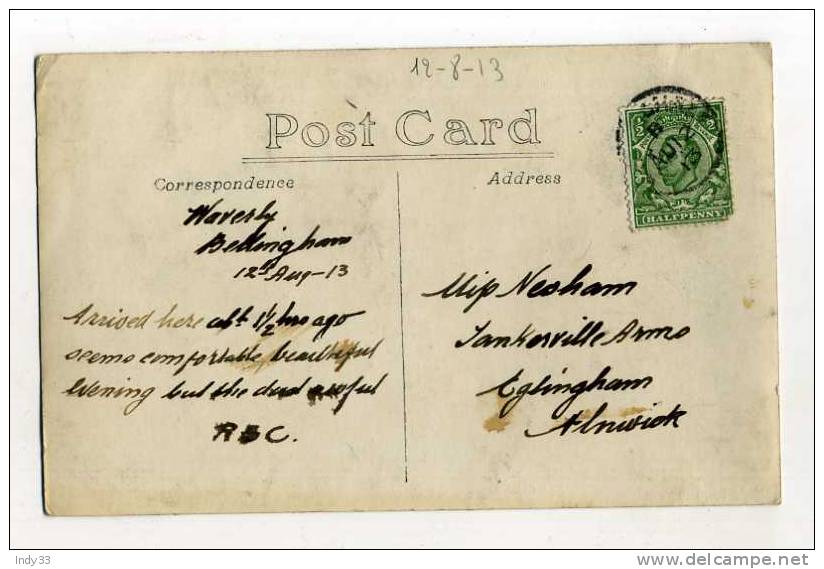 12-8-13
Post Card
Correspondence
Address
Waverly
Bellingham
12th Aug-13
Arrived here abt 1½ hrs ago
seems comfortable beautiful
evening but the dud awful
R B C.
½
HALFPENNY
Miss Nesham
Tankerville Arms
Eglingham
Alnwick
Indy33
delcampe.net